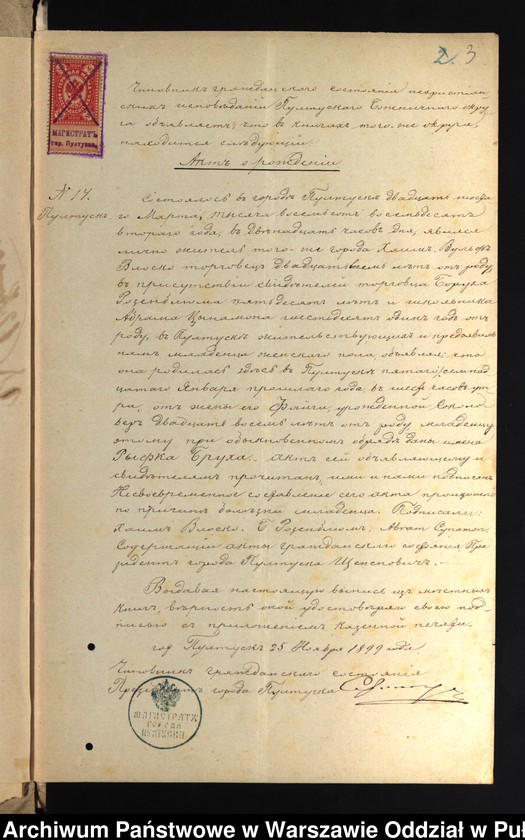 2. 3
МАГИСТРАТЪ
гор. Пултуска
Чиновникъ гражданскаго состоянія нехристіан-
скихъ исповѣданій Пултускаго Гминнаго окру-
га объявляетъ, что въ книгахъ того-же округа,
находится слѣдующій
Актъ о рожденіи
№ 17.
Пултускъ
Состоялось въ городѣ Пултускѣ двадцать
го Марта, тысяча восемьсотъ восемьдесятъ
втораго года, въ двѣнадцать часовъ дня, явился
лично житель того-же города Хаимъ Вульфъ
Влоско торговецъ двадцати лѣтъ отъ роду,
въ присутствіи свидѣтелей торговца Боруха
Розенблюма пятьдесятъ лѣтъ и школьника
Абрама Цынамона шестьдесятъ одинъ годъ отъ
роду, въ Пултускѣ жительствующихъ и предъявилъ
намъ младенца женскаго пола, объявляя: что
она родилась здѣсь въ Пултускѣ пятаго/семнад-
цатаго Января прошлаго года въ шесть часовъ ут-
ра, отъ жены его Файги, урожденной Соколо-
веръ двадцать восемь лѣтъ отъ роду младенцу
этому при обыкновенномъ обрядѣ даны имена
Рыфка Бруха. Актъ сей объявляющему и
свидѣтелямъ прочитанъ, ими и нами подписанъ
Несвоевременное составленіе сего акта произошло
по причинѣ болѣзни младенца. Подписали:
Хаимъ Влоско. Б Розенблюмъ, Abram Cynamon.
Содержащій акты гражданскаго состоянія Пре-
зидентъ города Пултуска
Выдавая настоящую выпись изъ мѣстныхъ
книгъ, вѣрность оной удостовѣряю своею под-
писью съ приложеніемъ казенной печати.
гор Пултускъ 25 Ноября 1899 года
Чиновникъ гражданскаго состоянія
Президентъ города Пултуска
МАГИСТРАТЪ
ГОРОДА
ПУЛТУСКА
Archiwum Państwowe w Warszawie Oddział w Puł